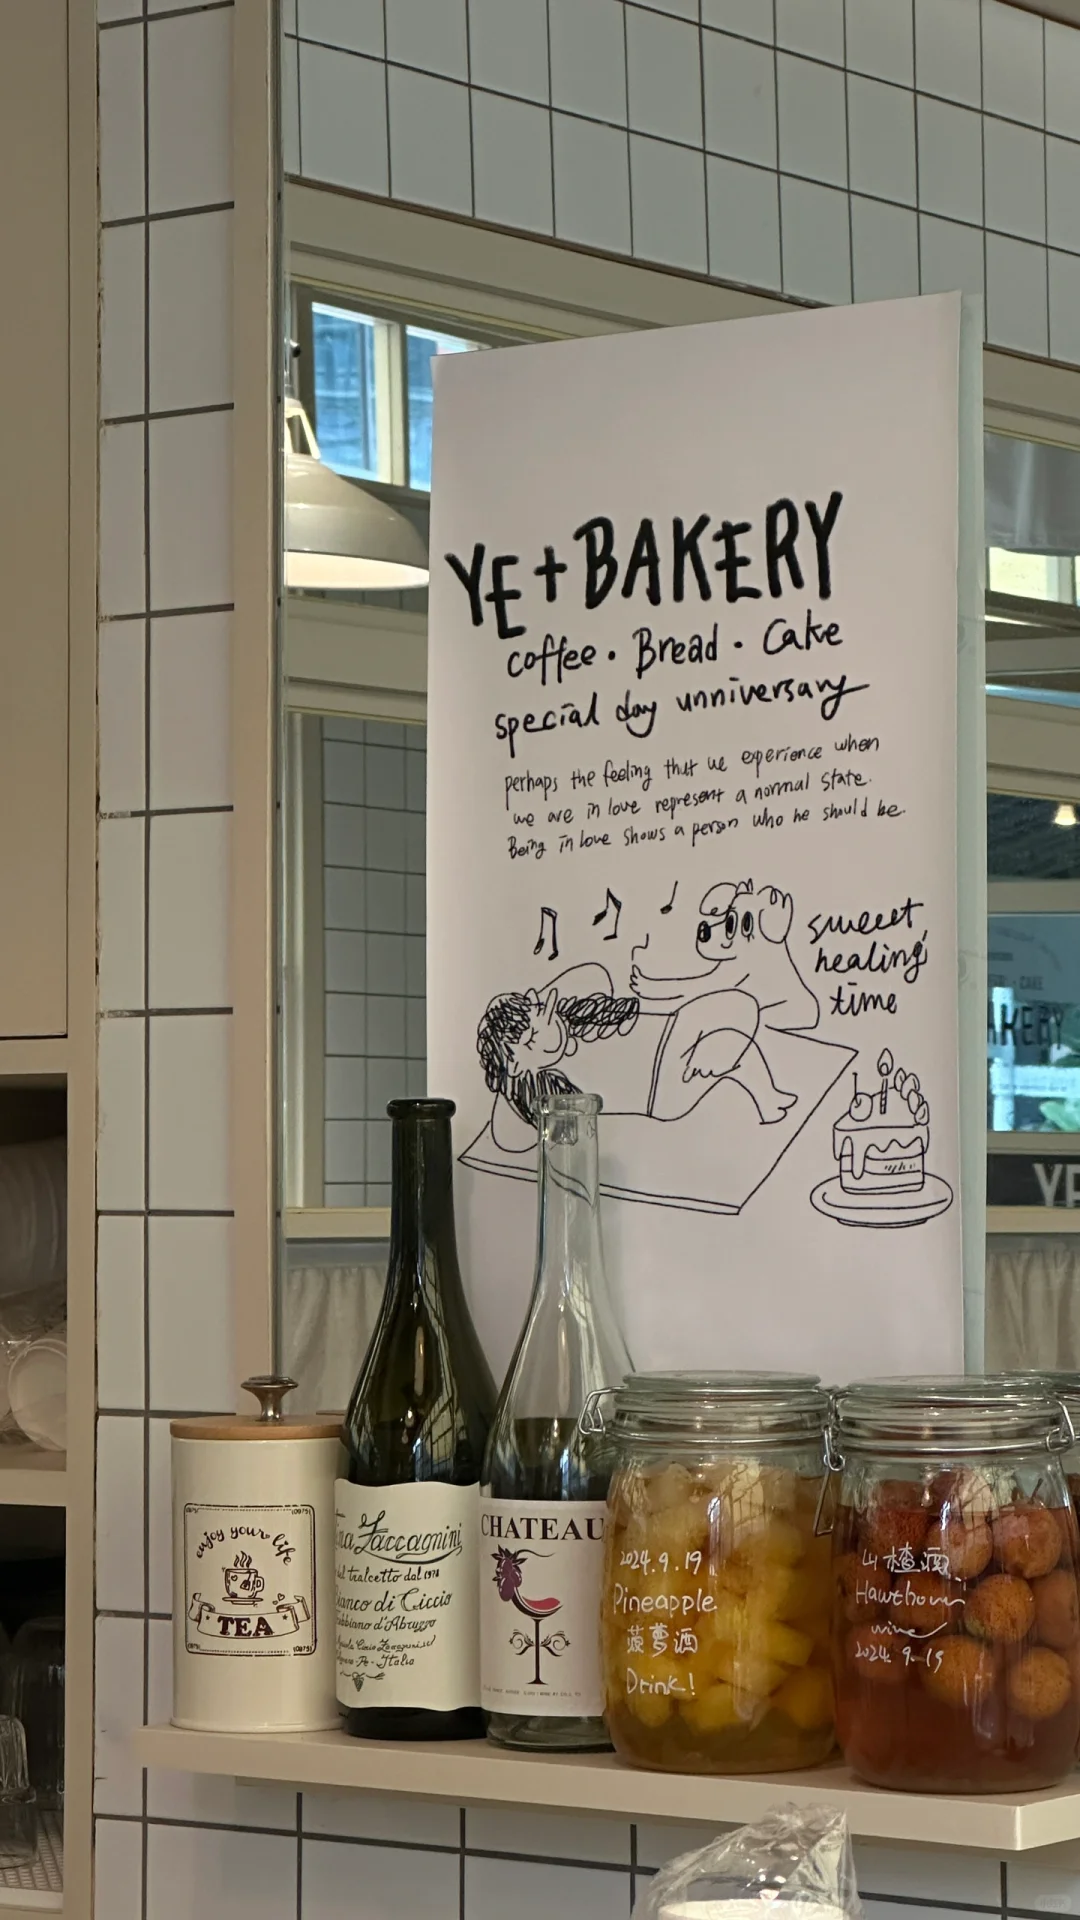 YE+BAKERY
coffee · Bread · Cake
special day unniversary
perhaps the feeling that we experience when
we are in love represent a normal state.
Being in love shows a person who he should be.
sweet
healing
time
AKERY
enjoy your life
TEA
Zaccagnini
tralcetto dal 1978
Bianco di Ciccio
d'Abruzzo
Italia
CHATEAU
2024.9.19
Pineapple
菠萝酒
Drink!
山楂酒
Hawthorn
wine
2024.9.19